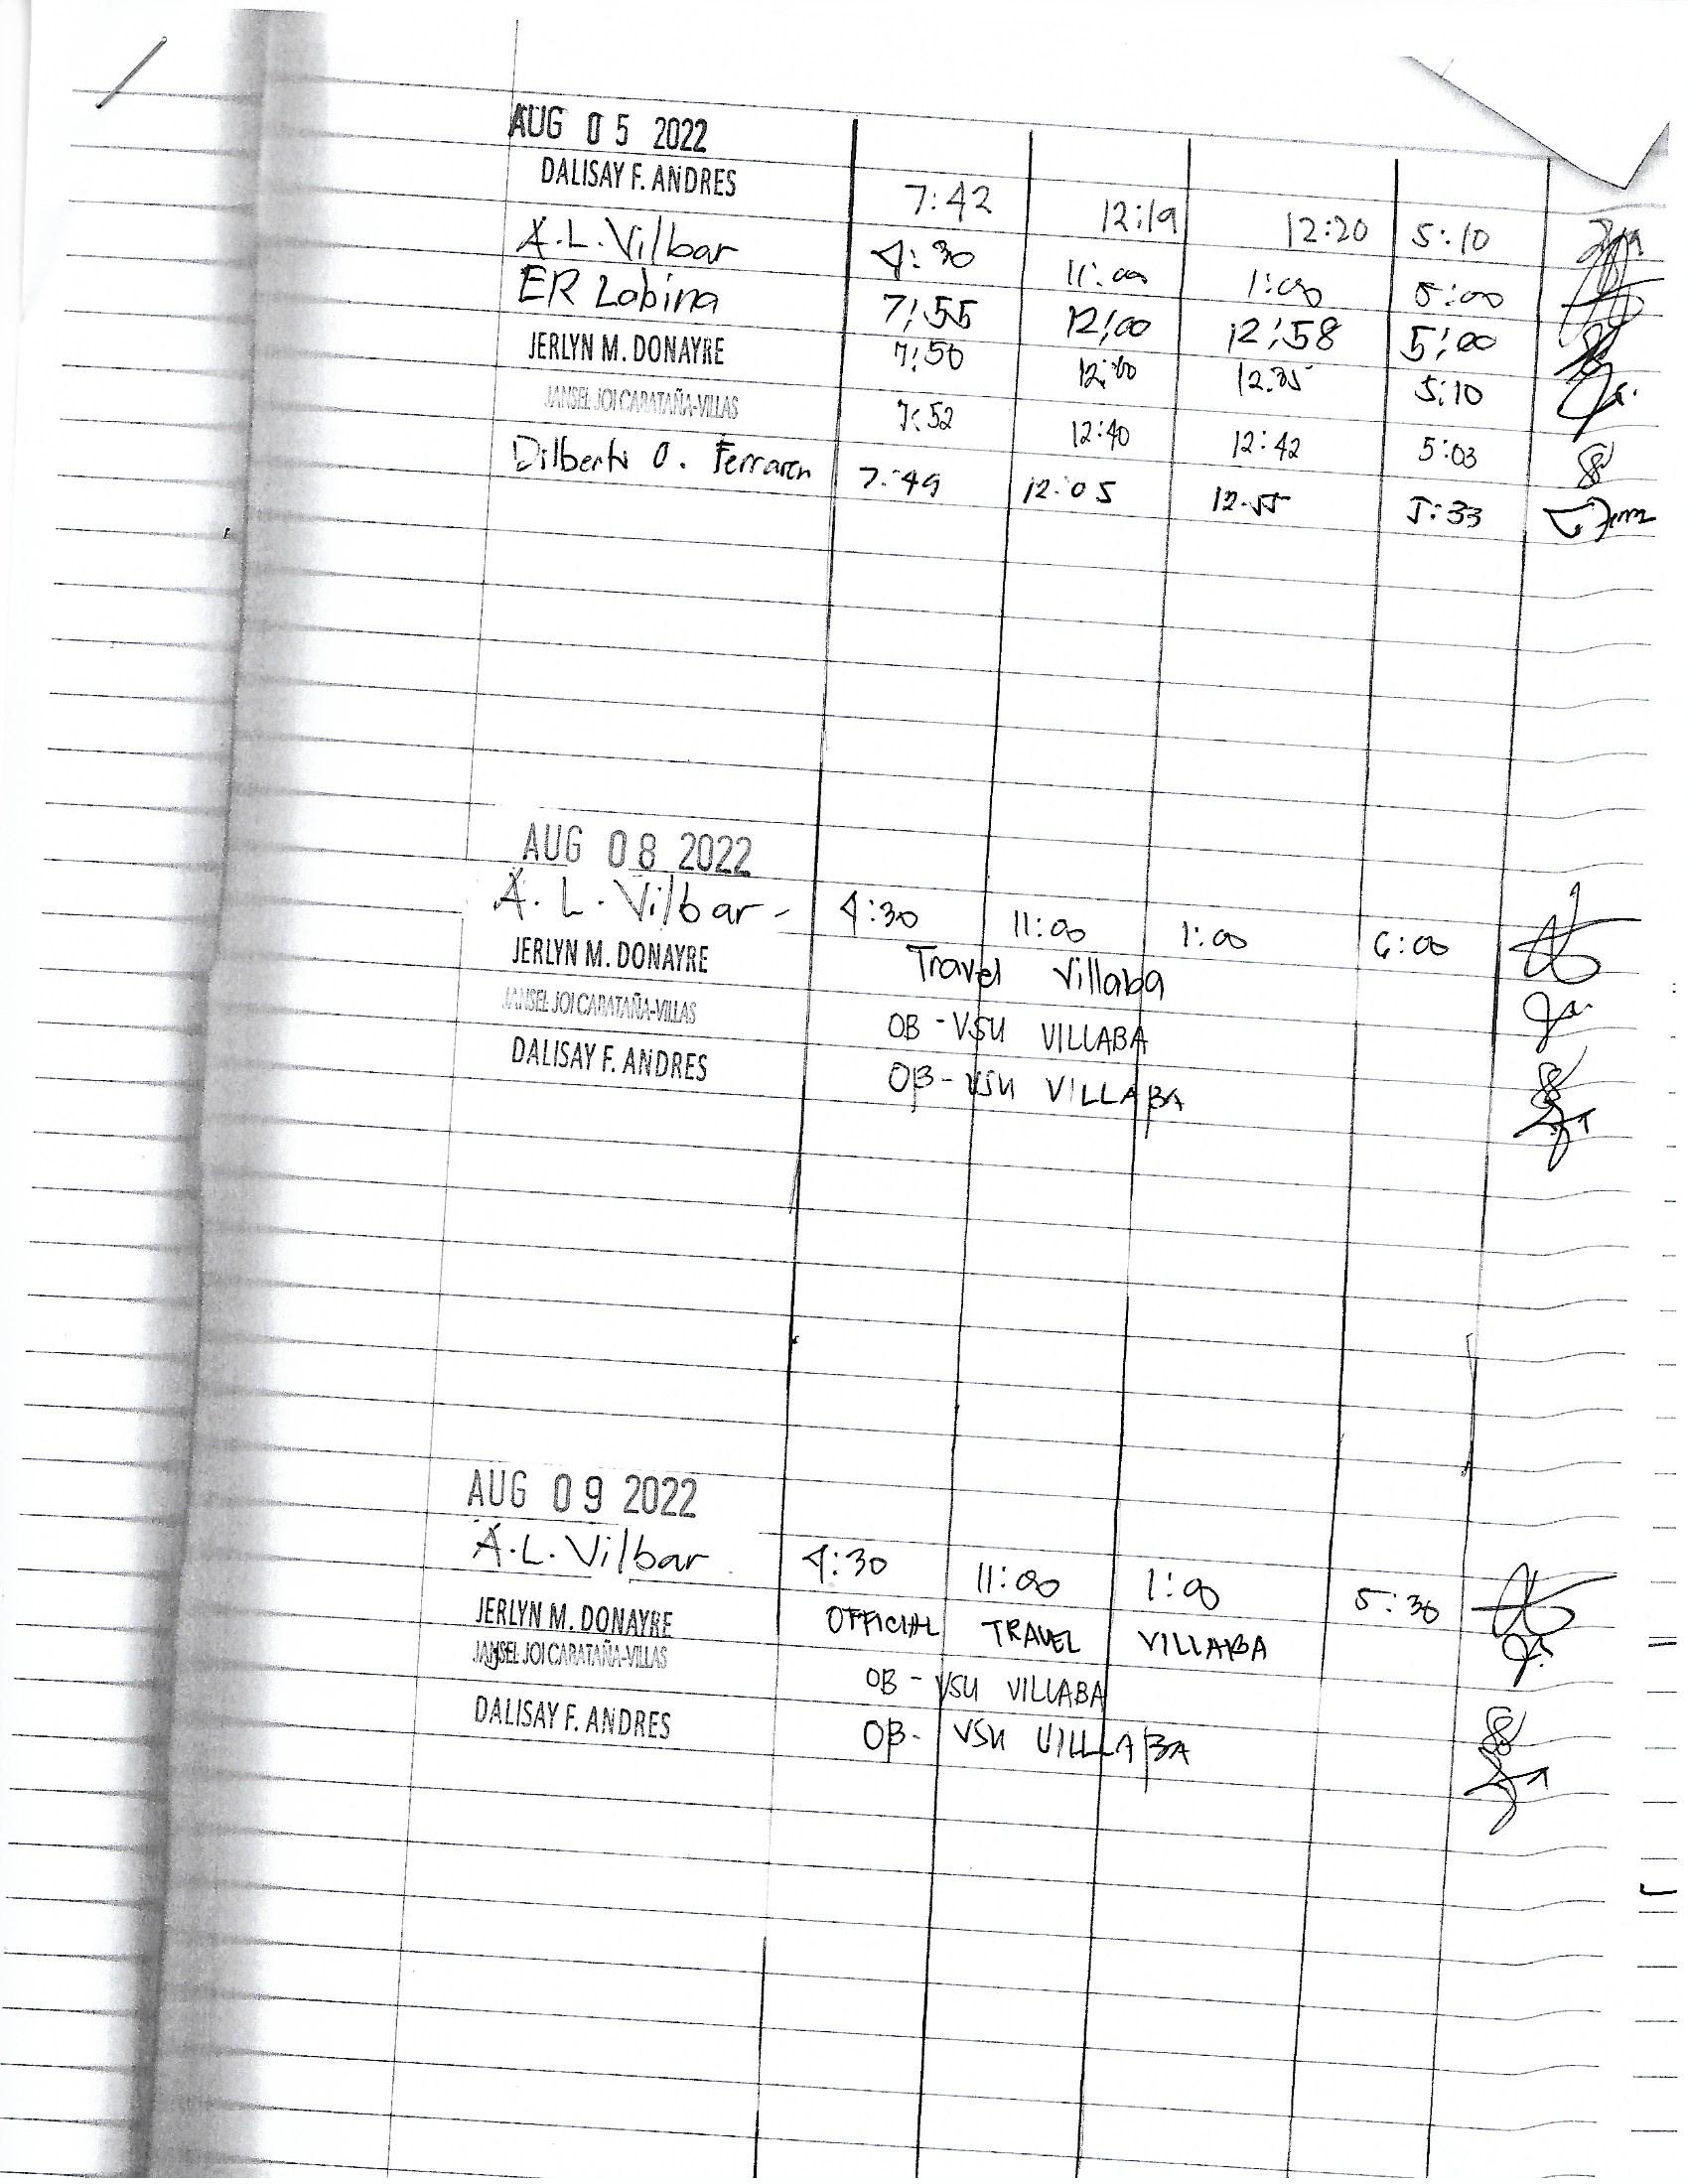 AUG 05 2022
DALISAY F. ANDRES 7:42 12:19 12:20 5:10
A.L. Vilbar 4:30 11:00 1:00 5:00
ER Labina 7:55 12:00 12:58 5:00
JERLYN M. DONAYRE 7:50 12:00 12:35 5:10
JANSEL JOI CARATAÑA-VILLAS 7:52 12:40 12:42 5:03
Dilberto O. 7:49 12:05 12:55 5:33
AUG 08 2022
A. L. Vilbar - 4:30 11:00 1:00 6:00
JERLYN M. DONAYRE Travel Villaba
JANSEL JOI CARATAÑA-VILLAS OB - VSU VILLABA
DALISAY F. ANDRES OB - VSU VILLABA
AUG 09 2022
A.L. Vilbar 4:30 11:00 1:00 5:30
JERLYN M. DONAYRE OFFICIAL TRAVEL VILLABA
JANSEL JOI CARATAÑA-VILLAS OB - VSU VILLABA
DALISAY F. ANDRES OB- VSU VILLLABA